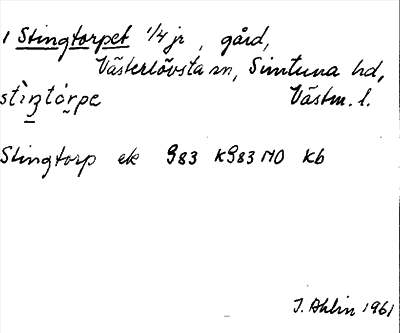 1 Stingtorpet 1/4 jr, gård,
Västerlövsta sn, Simtuna hd,
stìŋtórpe Västm. l.
Stingtorp ek 983 K983 NO Kb
J. Ahlin 1961